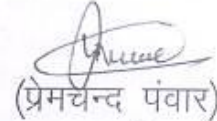 (प्रेमचन्द पंवार)